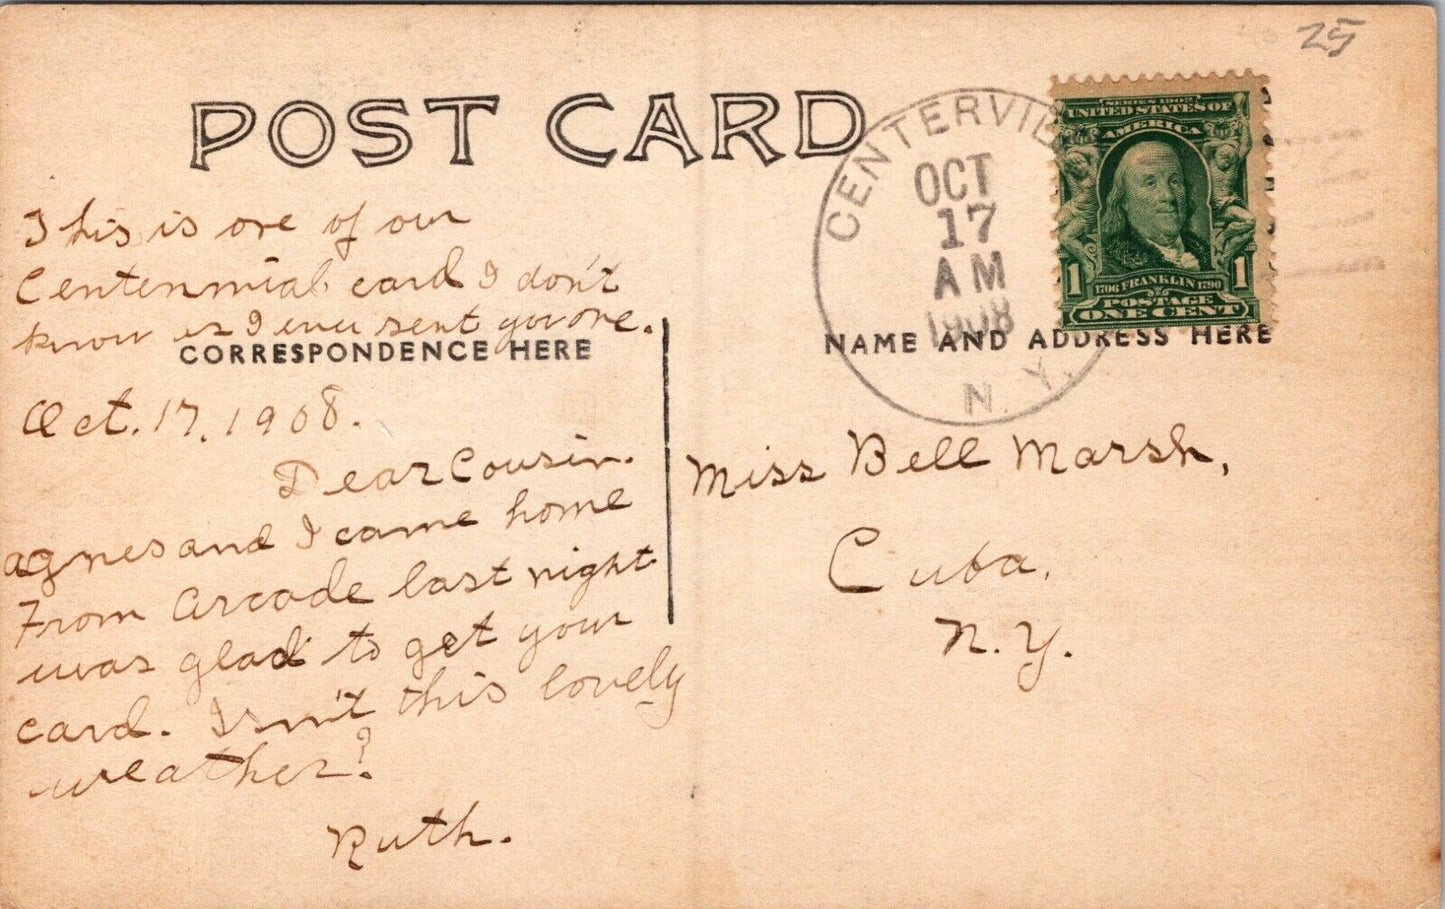 25
POST CARD
CENTERVIL
OCT
17
AM
1908
N.Y.
SERIES 1902
UNITED STATES OF
AMERICA
1706 FRANKLIN 1790
1 1
POSTAGE
ONE CENT
This is one of our
Centennial card I don't
know as I ever sent you one.
CORRESPONDENCE HERE
NAME AND ADDRESS HERE
Oct. 17, 1908.
Dear Cousin.
Agnes and I came home
From Arcade last night
was glad to get your
card. Isnn't this lovely
weather?
Ruth.
Miss Bell Marsh,
Cuba,
N.Y.